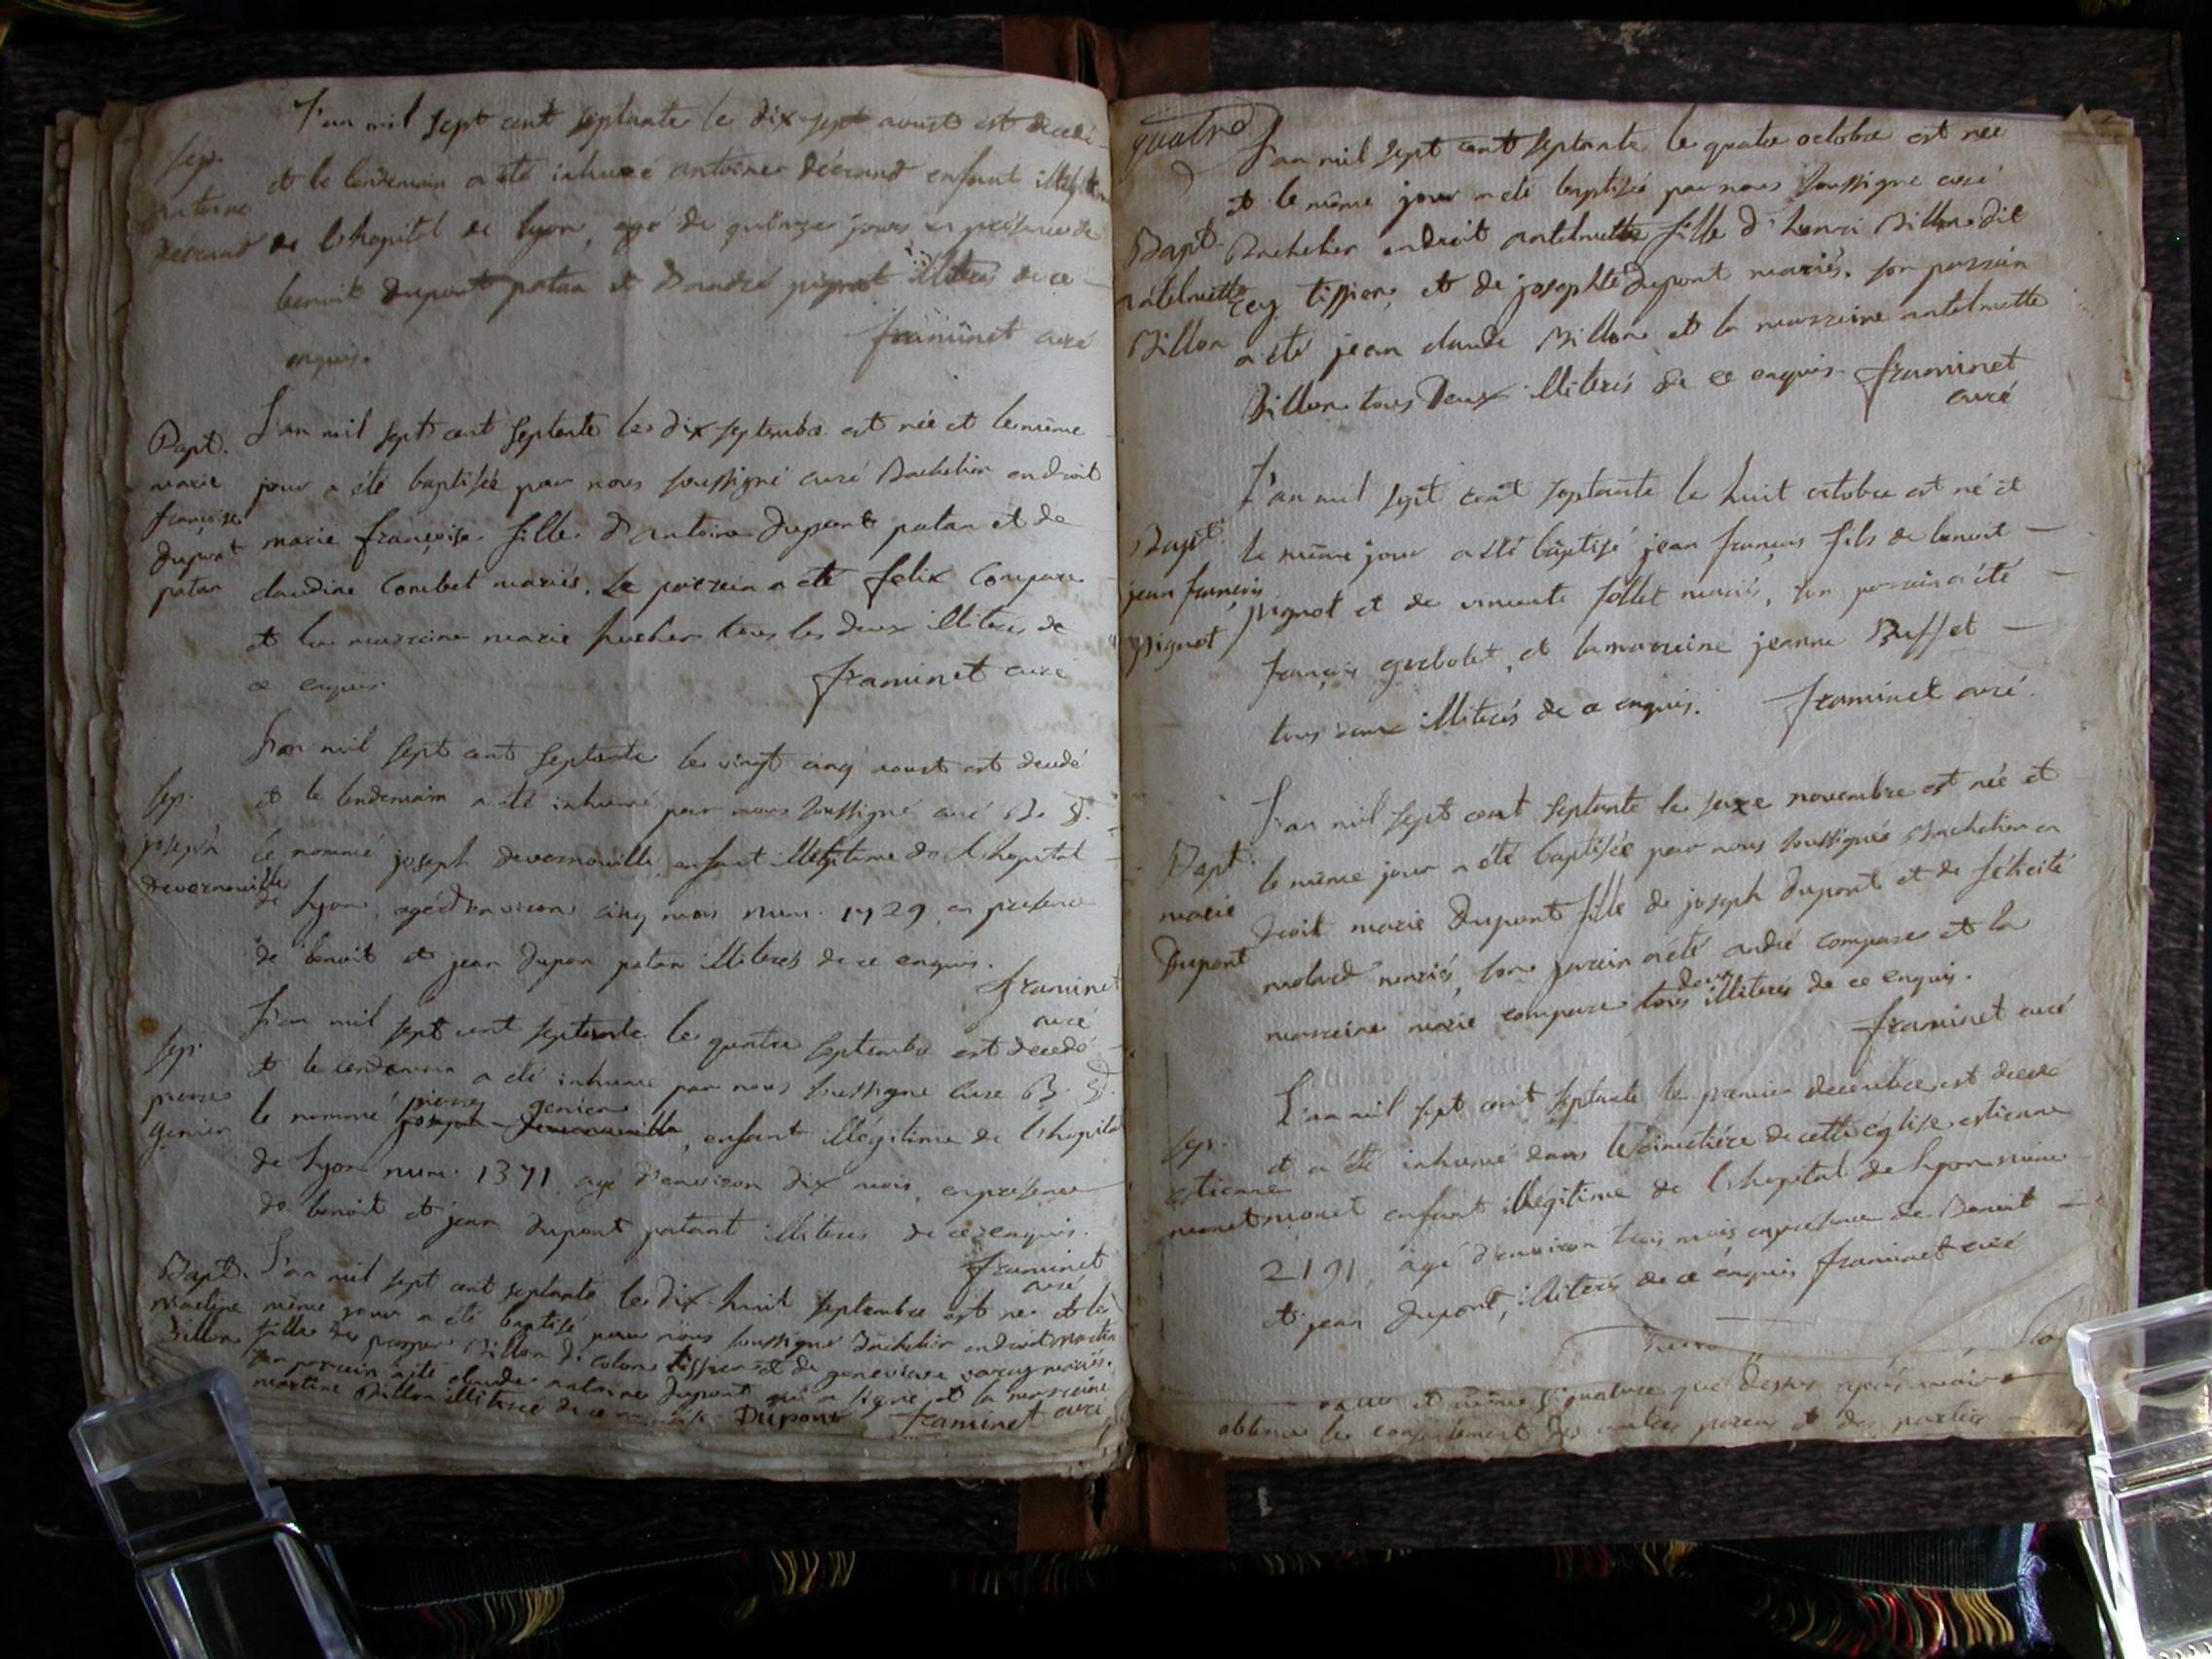 L'an mil sept cent septante le dix sept aoust est decedé
sep.
et le lendemain a été inhumé antoine décrand enfant illegitime
antoine
décrand
de l'hopital de lyon, agé de quinze jours en présence de
benoit dupont patan et d'andré pignot illiterés de ce
enquis.
framinet curé
L'an mil sept cent septante le dix septembre est née et le même
Bapt.
marie
françoise
dupont
patan
jour a été baptisée par nous soussigné curé Bachelier en droit
marie françoise fille d'antoine dupont patan et de
claudine Combet mariés. Le parrain a été felix Compare
et la marraine marie tous les deux illiterés de
ce enquis.
framinet curé
L'an mil sept cent septante le vingt cinq aoust est decedé
sep.
joseph
devernouille
et le lendemain a été inhumé par nous soussigné curé B. D.
le nommé joseph devernouille, enfant illégitime de l'hopital
de lyon, agé d'environ cinq mois num. 1729 en presence
de benoit et jean dupon patan illiterés de ce enquis.
framinet
curé
L'an mil sept cent septante le quatre septembre est decedé
sep.
pierre
genier
et le lendemain a été inhumé par nous soussigné curé B. D.
le nommé pierre genier, enfant illégitime de l'hopital
de lyon num. 1371 agé d'environ dix mois, en presence
de benoit et jean dupont patant illiterés de ce enquis.
framinet
curé
Bapt.
martine
Billon
L'an mil sept cent septante le dix huit septembre est née et le
même jour a été baptisé par nous soussigné Bachelier en droit martine
fille de prosper Billon di colon tissier et de genevieve mariés.
son parrain a été claude antoine dupont qui a signé et la marraine
martine Billon illiterée de ce enquise. Dupont framinet curé
quatre
L'an mil sept cent septante le quatre octobre est née
et le même jour a été baptisée par nous soussigné curé
Bapt.
antelmette
Billon
Bachelier en droit antelmette fille d'henri Billon dit
cey tissier, et de josephte Dupont mariés. son parrain
a été jean claude Billon et la marraine antelmette
Billon tous deux illiterés de ce enquis. framinet
curé
L'an mil sept cent septante le huit octobre est né et
Bapt.
jean françois
pignot
le même jour a été baptisé jean françois fils de benoit
pignot et de vincente follet mariés, son parrain a été
françois gerbolet, et la marraine jeanne Buffet
tous deux illiterés de ce enquis. framinet curé.
L'an mil sept cent septante le seize novembre est née et
Bapt.
marie
Dupont
le même jour a été baptisée par nous soussignés Bachelier en
droit marie Dupont fille de joseph dupont et de félicité
molard mariés, son parrain a été andré compare et la
marraine marie compare tous deux illiterés de ce enquis.
framinet curé
L'an mil sept cent septante le premier decembre est decedé
sep.
estienne
monet
et a été inhumé dans le cimetière de cette église estienne
monet enfant illégitime de l'hopital de lyon num.
2191, agé d'environ trois mois en presence de Benoit
et jean Dupont, illiterés de ce enquis framinet curé
et même signature que dessus après avoir
obtenu le consentement des autres parens et des parties